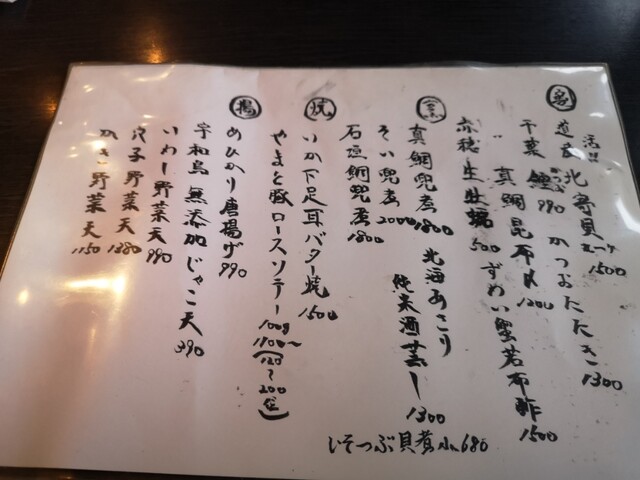 活
北寄貝 1500
かつおたたき 1300
千葉 鰹 990
真鯛昆布〆 1200
ずわい蟹若布酢 1500
赤穂 生牡蠣 500
真鯛兜煮 1800
北海あさり
純米酒蒸し 1300
そい兜煮 2000
いそつぶ貝煮 小 680
石垣鯛兜煮 1800
焼
いか下足耳バター焼 1500
やまと豚ロースソテー 100g 1100〜(120〜200位)
揚
めひかり唐揚げ 990
宇和島 無添加じゃこ天 390
いわし野菜天 990
穴子野菜天 1380
かき野菜天 1150